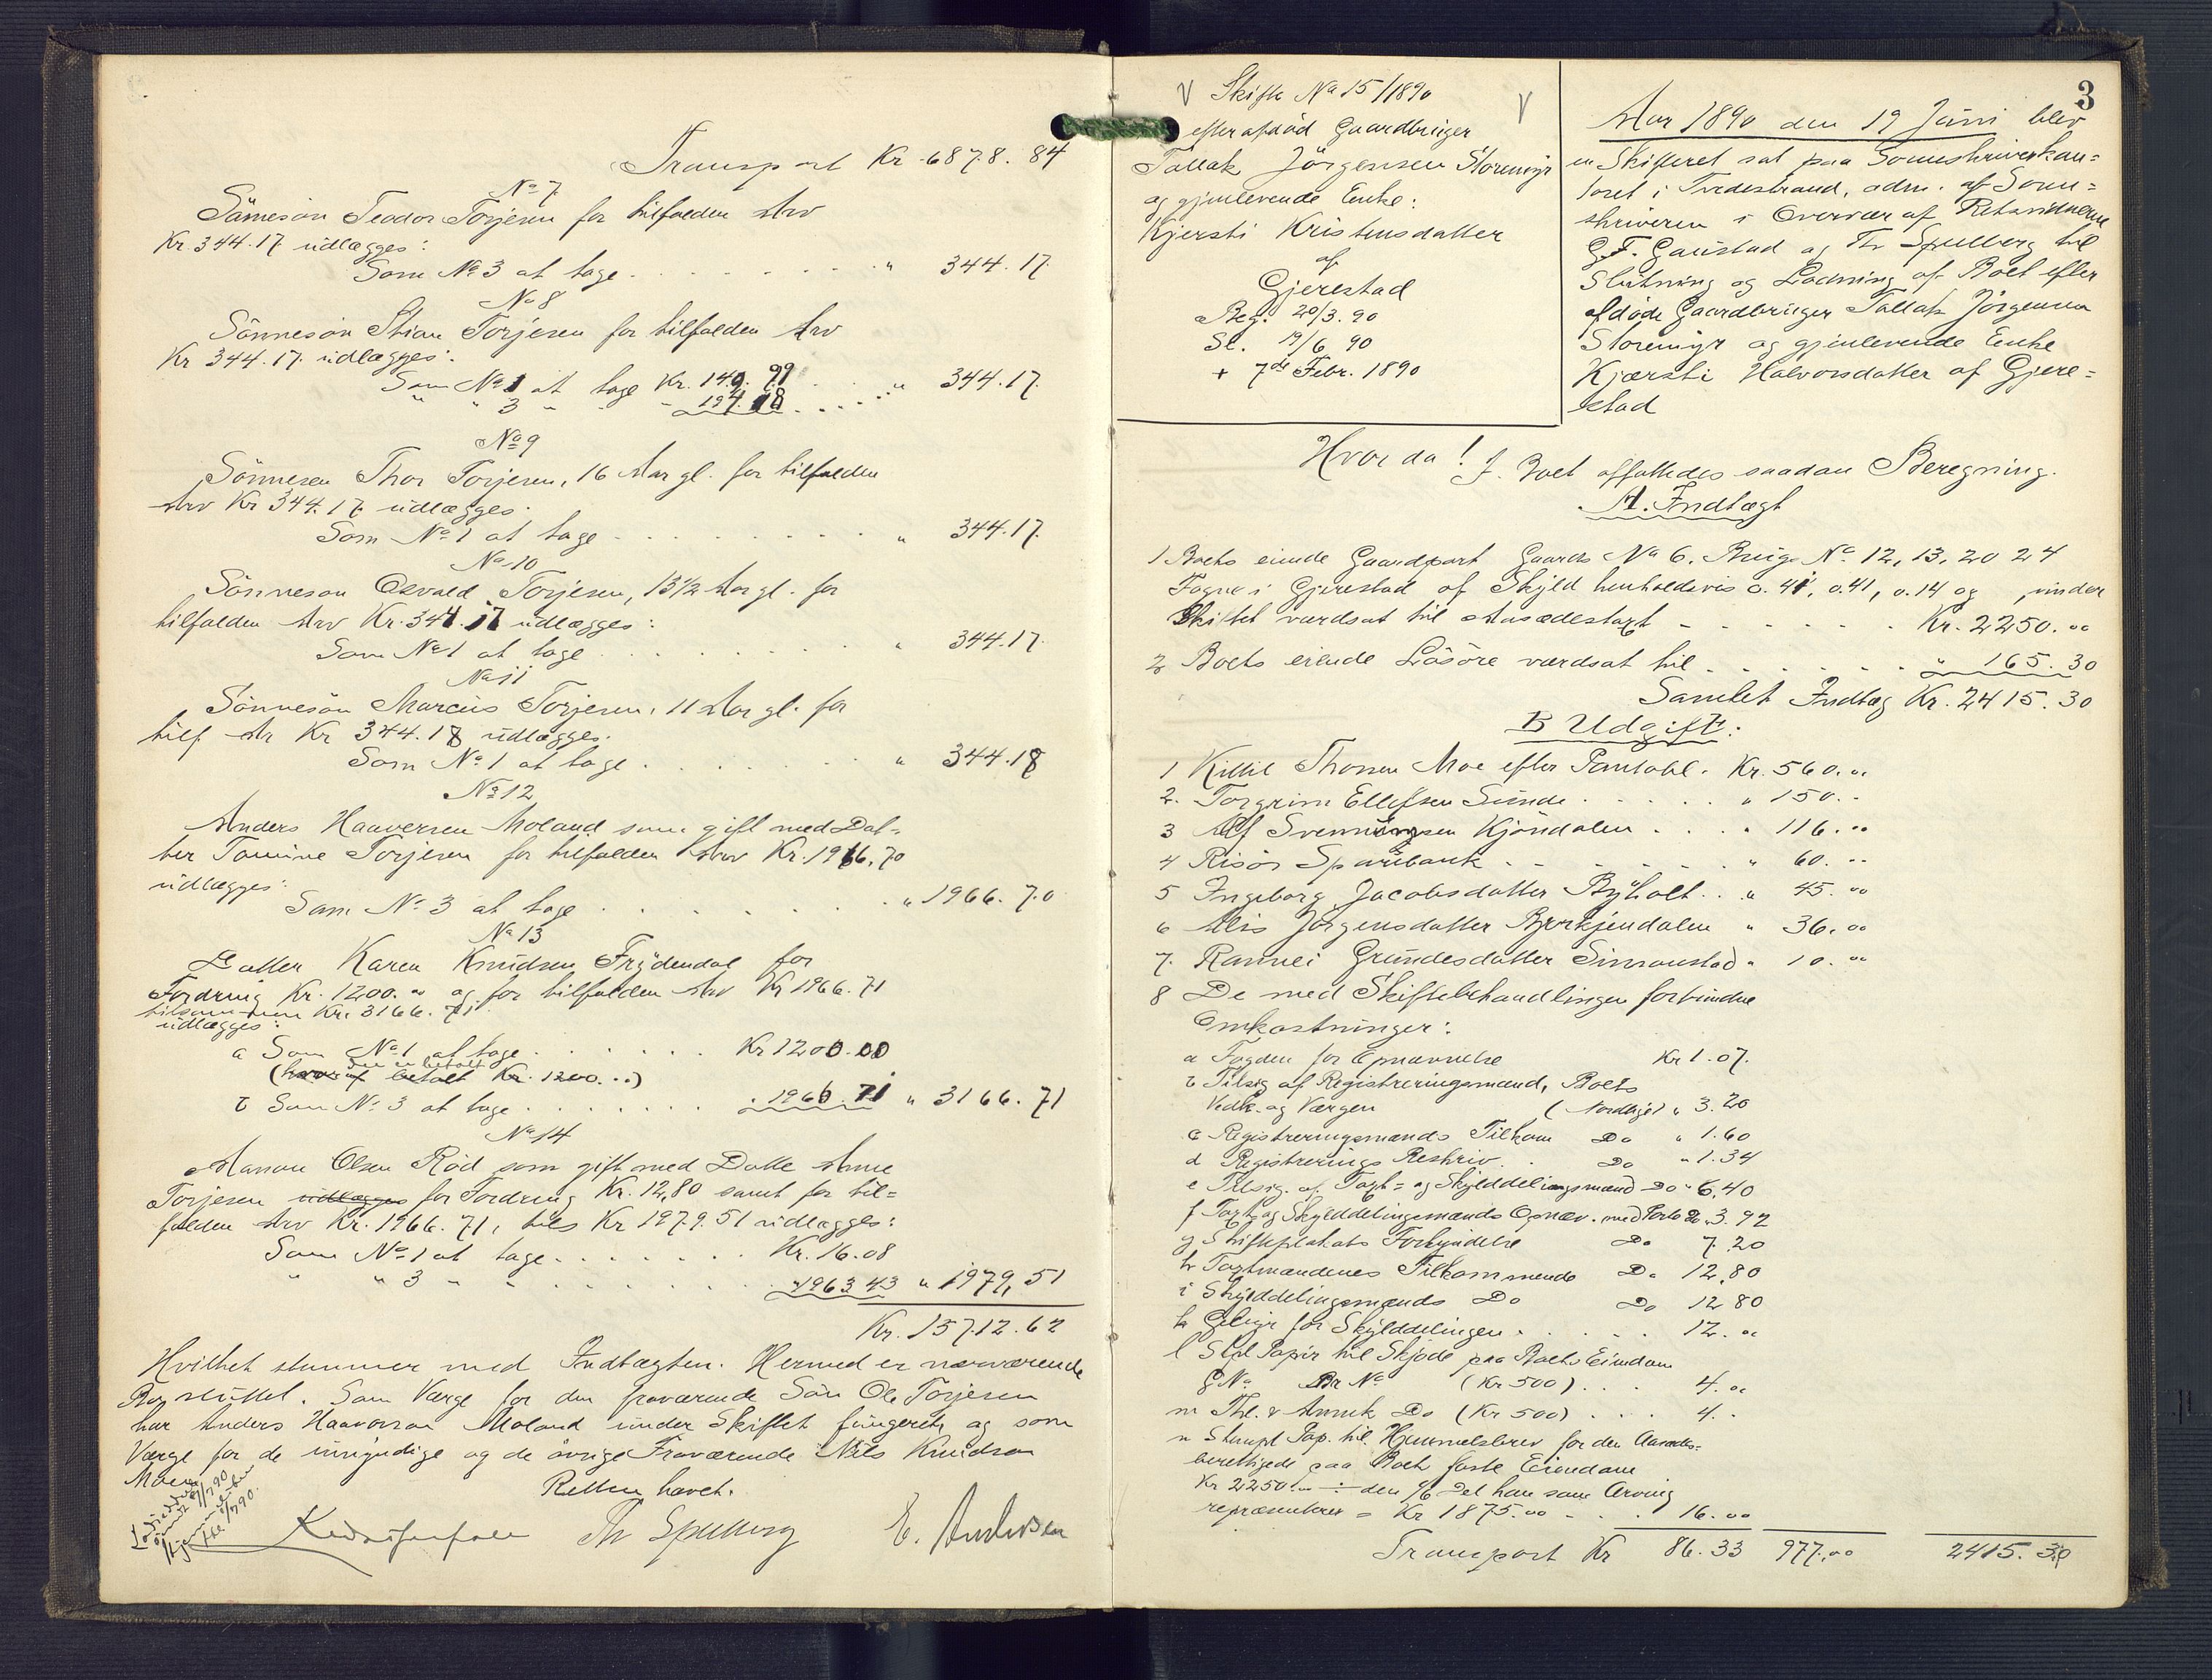 Transport Kr 6878.84
No 7
Sönnesön Teodor Torjesen for tilfalden Arv
Kr 344.17 udlægges:
Som No 3 at tage . . . . . . . " 344.17
No 8
Sönnesön Stian Torjesen for tilfalden Arv
Kr 344.17 udlægges:
Som No 1 at tage Kr. 149.99 . . " 344.17.
" " 3 " " 194.18 . . . .
No 9
Sönnesön Thor Torjesen, 16 Aar gl. for tilfalden
Arv Kr 344.17 udlægges:
Som No 1 at tage . . . . . . . . . " 344.17.
No 10
Sönneson Osvald Torjesen, 13½ Aar gl. for
tilfalden Arv Kr. 344.17 udlægges:
Som No 1 at tage . . . . . . . . . " 344.17
No 11
Sönnesön Marcus Torjesen, 11 Aar gl. for
tilf Ar Kr 344.18 udlægges.
Som No 1 at tage . . . . . . . " 344.18
No 12
Anders Haaversen Moland som gift med Dat=
ter Tomine Torjesen for tilfalden Arv Kr. 1966.70
udlægges:
Som No 3 at tage . . . . . . . . " 1966.70
No 13
Datter Karen Knudsen Frydendal for
Fordring Kr. 1200." og for tilfalden Arv Kr 1966.71
tilsammen Kr. 3166.71
udlægges:
a Som No 1 at tage . . . . . . Kr 1200.00
den er betalt
(hvoraf betalt Kr. 1200. ..)
b Som No 3 at tage . . . . . . . " 1966.71 " 3166.71
No 14
Aanon Olsen Röd som gift med Datte Anne
Torjesen udlægges for Fordring Kr. 12,80 samt for til=
falden Arv Kr. 1966.71, tils Kr 1979.51 udlægges:
Som No 1 at tage . . . . . . . Kr. 16.08
" " 3 " " . . . . . . . . " 1963 43 " 1979,51
Kr. 15712.62
Hvilket stemmer med Indtægten. Hermed er nærværende
Bo sluttet. Som Værge for den fraværende Sön Ole Torjesen
har Anders Haavorsen Moland under Skiftet fungeret, og som
Værge for de umyndige og de övrige Fraværende Nils Knudsen
Moen.
Retten hævet.
Th Spelberg E. Andersen
3
Skifte No 15/1890
efter afdöd Gaardbruger
Tallak Jörgensen Störemyr
og gjenlevende Enke:
Kjersti Kristensdatter
af
Gjerestad
Beg. 20/3.90
Sl. 19/6 90
+ 7de Febr. 1890
Aar 1890 den 19 Juni blev
en Skifteret sat paa Sorenskriverkon=
toret i Tvedestrand, adm. af Soren=
skriveren i Overvær af Retsvidnerne
G.F. Gaustad og Th Spelberg til
Slutning og Lodning af Boet efter
afdöde Gaardbruger Tallak Jörgensen
Storemyr og gjenlevende Enke
Kjærsti Halvorsdatter af Gjere=
stad
Hvorda! I Boet affattedes saadan Beregning.
A. Indtægt
1 Boets eiende Gaardpart Gaards No 6. Brugs No 12, 13, 20 24
Fogne i Gjerestad af Skyld henholdsvis 0.41, 0.41, 0.14 og , under
Skiftet værdsat til Aasædestaxt - - - - - Kr. 2250.00
2 Boets eiende Lösöre værdsat til . . . . . . " 165.30
Samlet Indtæg Kr. 2415.30
B Udgift:
1 Kittil Thorsen Moe efter Pantobl. Kr. 560. "
2. Torgrim Ellefsen Sunde . . . . . " 150. "
3 Alf Svenningsen Kjöndalen . . . " 116. "
4 Risör Sparebank - - - - - " 60. "
5 Ingeborg Jacobsdatter Byholt . . " 45. 00
6 Alis Jörgensdatter Bjorkjendalen " 36. 00
7. Rannei Grundesdatter Simonstad " 10. "
8 De med Skiftebehandlingen forbundne
Omkostninger:
a Fogden for Opnævnelse Kr 1.07.
b Tilsig. af Registreringsmænd, Boets
Vedk. og Værgen (Nordlije) " 3.20
c Registreringsmænds Tilkom Do " 1.60
d Registrerings Beskriv. . Do " 1.34
e Tilsig. af Taxt= og Skylddelingsmænd Do " 6.40
f Taxt og Skylddelingsmænds Opnæv. med Porto Do 3.92
g Skifteplakats Forkyndelse Do 7.20
h Taxtmændenes Tilkommende Do 12,80
i Skylddelingsmænds Do Do 12 80
k Gebyr for Skylddelingen . . . . . 12. "
l Stpl Papir til Skjöde paa Boets Eiendom
G No Br No (Kr 500) . . . 4. "
m Thl. & Anmrk Do (Kr 500) . . . 4. "
n Stempl Pap. til Hjemmelsbrev for den Aasædes=
berettigede paa Boets faste Eiendom
Kr 2250. " ÷ den 1/6 Del han som Arving
repræsenterer = Kr 1875.00 - . . 16.00
Transport Kr 86.33 977.00 2415.30